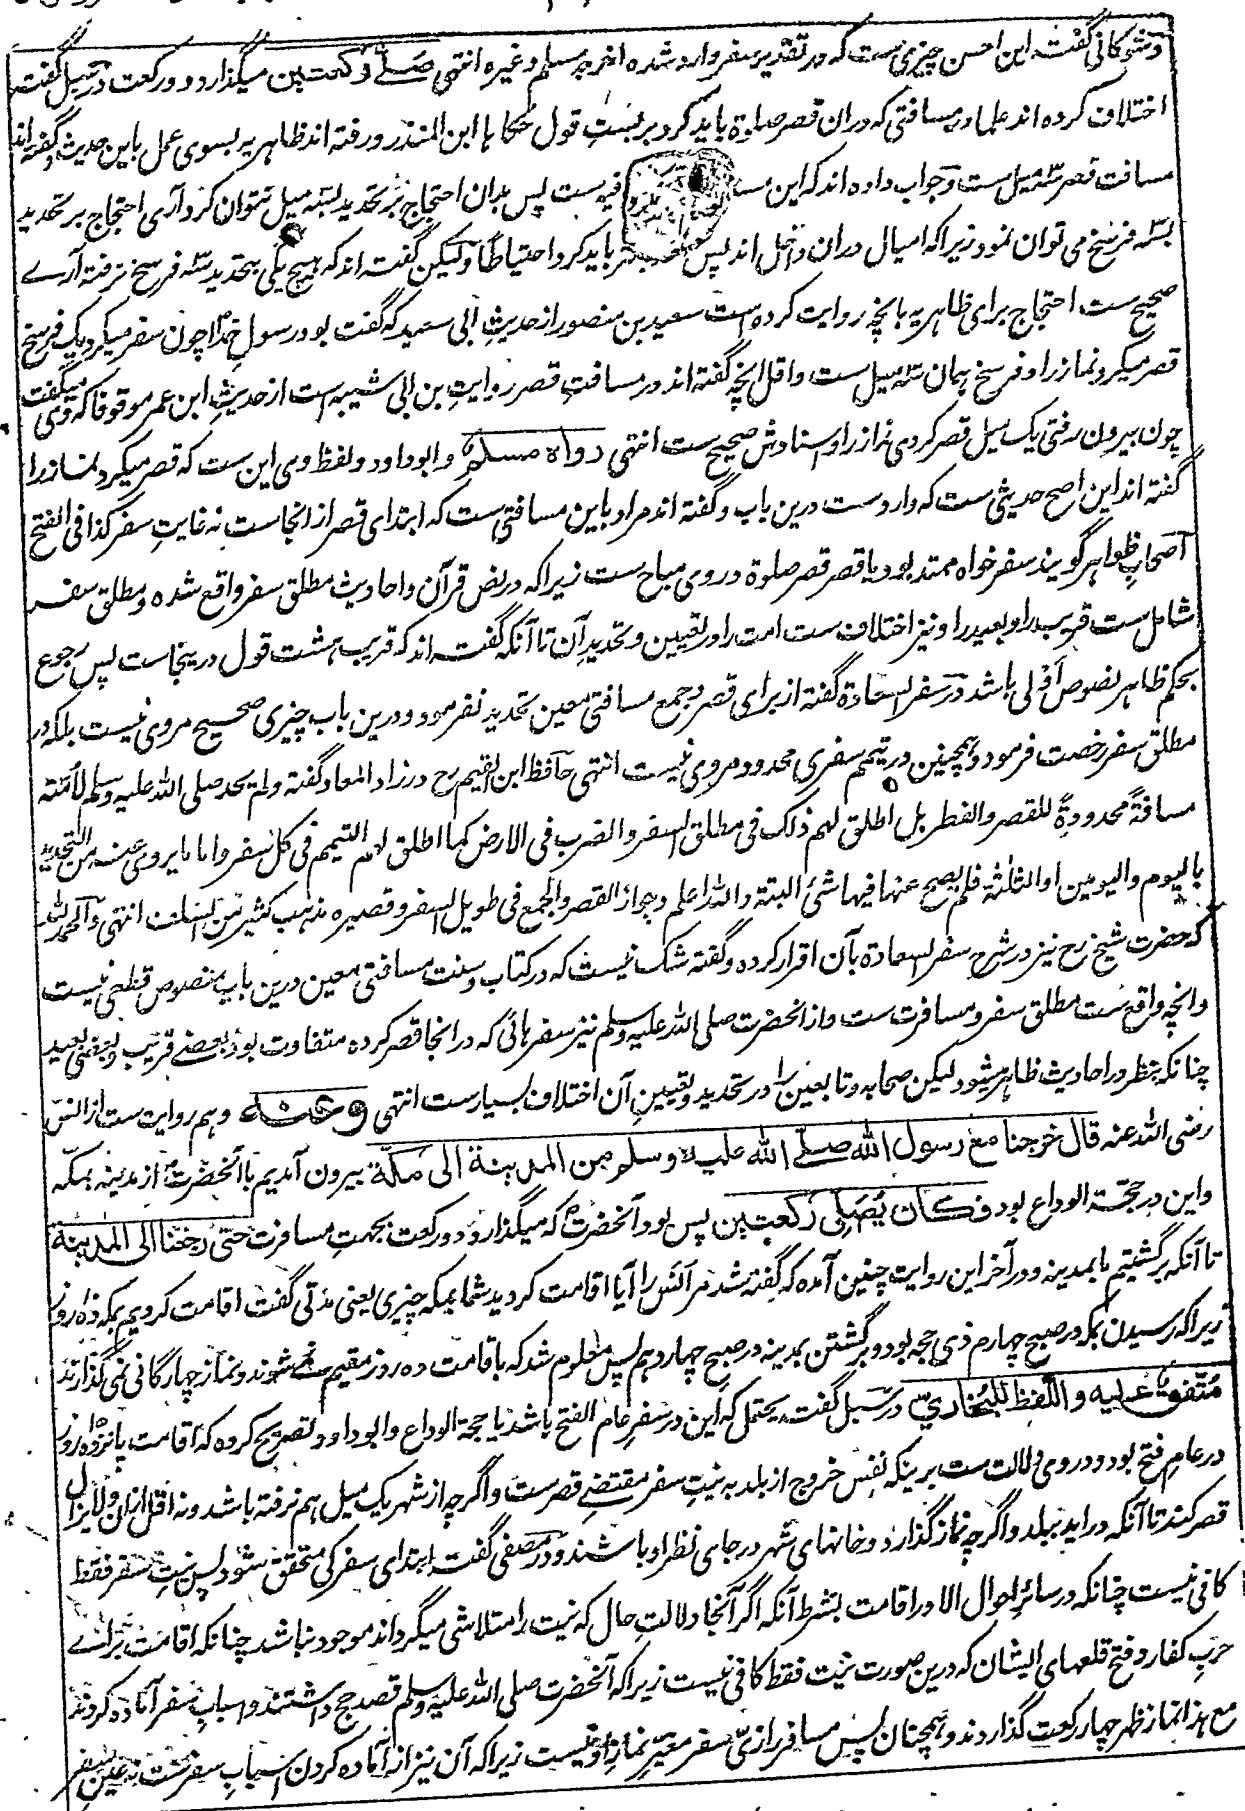 و شوکانی گفته این احسن چیزی ست که در تقدیر سفر وارد شده اخرجه مسلم و غیره انتهی صلے رکعتین میگذارد دو رکعت در سبل گفت
اختلاف کرده اند علما در مسافتی که در ان قصر صلوة باید کرد بر بست قول حکاها ابن المنذر و رفته اند ظاهریه بسوی عمل باین حدیث و گفته اند
مسافت قصر سه میل ست و جواب داده اند که این فیه ست پس بدان احتجاج بر تحدید بسه میل نتوان کرد آری احتجاج بر تحدید
بسه فرسخ می توان نمود زیرا که امیال در ان داخل اند پس باید کرد احتیاطا و لیکن گفته اند که هیچ یکی بتحدید سه فرسخ نرفته آرے
صحیح ست احتجاج برای ظاهریه بانچه روایت کرده است سعید بن منصور از حدیث ابی سعید که گفت بود رسول خدا چون سفر میکرد یک فرسخ
قصر میکرد نماز را و فرسخ همان سه میل ست و اقل انچه گفته اند در مسافت قصر روایت بن ابی شیبه است از حدیث ابن عمر موقوفا که وی میگفت
چون بیرون رفتی یک میل قصر کردمی نماز را و اسنادش صحیح ست انتهی رواه مسلم و ابو داود و لفظ وی این ست که قصر میکرد نماز را
گفته اند این اصح حدیثی ست که وارد ست درین باب و گفته اند مراد باین مسافتی ست که ابتدای قصر از انجاست نه غایت سفر کذا فی الفتح
اصحاب ظواهر گویند سفر خواه ممتد بود یا قصر قصر صلوة در وی مباح ست زیرا که در نص قرآن و احادیث مطلق سفر واقع شده و مطلق سفر
شامل ست قریب را و بعید را و نیز اختلاف ست امت را در تعیین و تحدید آن تا آنکه گفته اند که قریب هشت قول درینجاست پس رجوع
بحکم ظاهر نصوص اولی باشد در سفر السعادة گفته از برای قصر و جمع مسافتی معین تحدید نفرموده و درین باب چیزی صحیح مروی نیست بلکه در
مطلق سفر رخصت فرمود و همچنین در تیمم سفری محدود مروی نیست انتهی حافظ ابن القیم رح در زاد المعاد گفته و لم یحد صلی الله علیه و سلم لأمته
مسافةً محدودةً للقصر والفطر بل اطلق لهم ذلک فی مطلق السفر والضرب فی الارض کما اطلق لهم التیمم فی کل سفر و اما ما یروی عنه من التحدید
بالیوم والیومین او الثلثة فلم یصح عنه فیها شئ البتة والله اعلم و جواز القصر والجمع فی طویل السفر و قصیره مذهب کثیر من السلف انتهی و الحمد لله
که حضرت شیخ رح نیز در شرح سفر السعادة بآن اقرار کرده و گفته شک نیست که در کتاب و سنت مسافتی معین درین باب منصوص قطعی نیست
و انچه واقع ست مطلق سفر و مسافرت ست و از انحضرت صلی الله علیه وسلم نیز سفرهائی که در انجا قصر کرده متفاوت بود بعضے قریب و بعضی بعید
چنانکه بنظر در احادیث ظاهر میشود لیکن صحابه و تابعین را در تحدید و تعیین آن اختلاف بسیارست انتهی وعنه و هم روایت ست از انس
رضی الله عنه قال خرجنا مع رسول الله صلے الله علیه وسلم من المدینة الی مکة بیرون آمدیم با آنحضرت از مدینه بمکه
و این در حجة الوداع بود فکان یُصَلی رکعتین پس بود آنحضرت که میگذارد دو رکعت بجهت مسافرت حتی رجعنا الی المدینة
تا آنکه برگشتیم ما بمدینه و در آخر این روایت چنین آمده که گفته شد مر انس را آیا اقامت کردید شما بمکه چیزی یعنی مدتی گفت اقامت کردیم بمکه ده روز
زیرا که رسیدن بمکه در صبح چهارم ذی حجه بود و برگشتن بمدینه در صبح چهاردهم پس معلوم شد که باقامت ده روز مقیم نمی شوند و نماز چهارگانی نمی گذارند
متفق علیه و اللفظ للبُخاری در سبل گفته یحتمل که این در سفر عام الفتح باشد یا حجة الوداع و ابو داود تصریح کرده که اقامت پانزده روز
در عام فتح بود و در وی دلالت ست برینکه نفس خروج از بلد به نیت سفر مقتضی قصر ست و اگرچه از شهر یک میل هم نرفته باشد و نه اقل از ان و لایزال
قصر کند تا آنکه در اید ببلد و اگرچه نماز گذارد و خانهای شهر در جای نظر او باشند و در مصفی گفته ابتدای سفر کی متحقق شود پس نیت سفر فقط
کافی نیست چنانکه در سائر احوال الا در اقامت بشرط آنکه اگر آنجا دلالت حال که نیت را متلاشی میگرداند موجود نباشد چنانکه اقامت براے
حرب کفار و فتح قلعهای ایشان که درین صورت نیت فقط کافی نیست زیرا که آنحضرت صلی الله علیه وسلم قصد حج داشتند و اسباب سفر آماده کردند
مع هذا نماز ظهر چهار رکعت گذاردند و همچنان لبس مسافر از زی سفر مغیر نماز او نیست زیرا که آن نیز از آماده کردن اسباب سفرست نه عین سفر